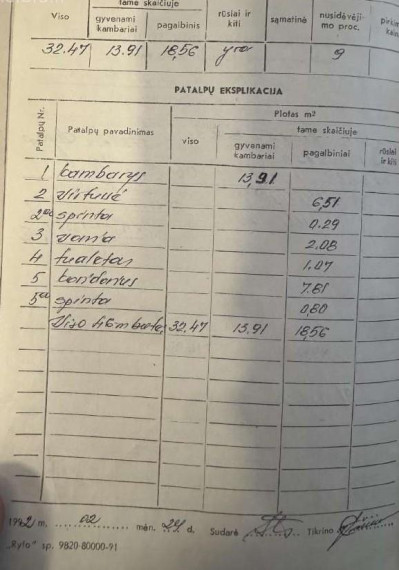 tame skaičiuje
Viso gyvenami kambariai pagalbinis rūsiai ir kiti sąmatinė nusidėvėjimo proc.
32.47 13.91 18,56 yra 9
PATALPŲ EKSPLIKACIJA
Patalpų Nr. Patalpų pavadinimas Plotas m²
viso tame skaičiuje
gyvenami kambariai pagalbiniai rūsiai ir kiti
1 kambarys 13,91
2 virtuvė 6,51
2a spinta 0.29
3 vonia 2.08
4 tualetas 1.07
5 koridorius 7.81
5a spinta 0,80
Viso 1 kambarys 32.47 13.91 18,56
1992 m. 02 mėn. 24 d. Sudarė Tikrino
„Ryto" sp. 9820-80000-91